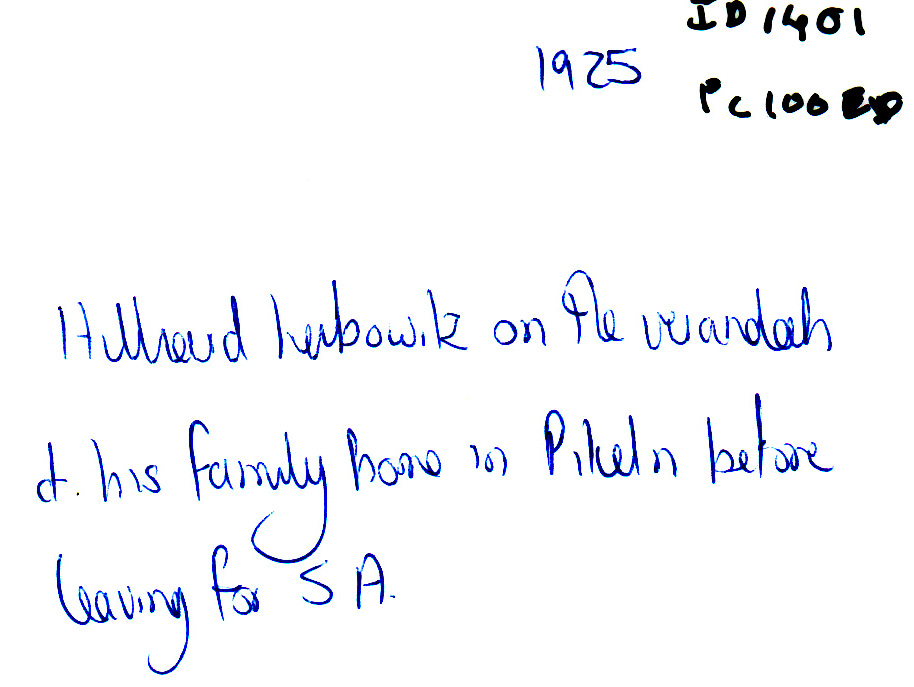 ID 1401
1925
PC 100
Hillard Leibowitz on the verandah
of his family home in Pikeln before
leaving for SA.